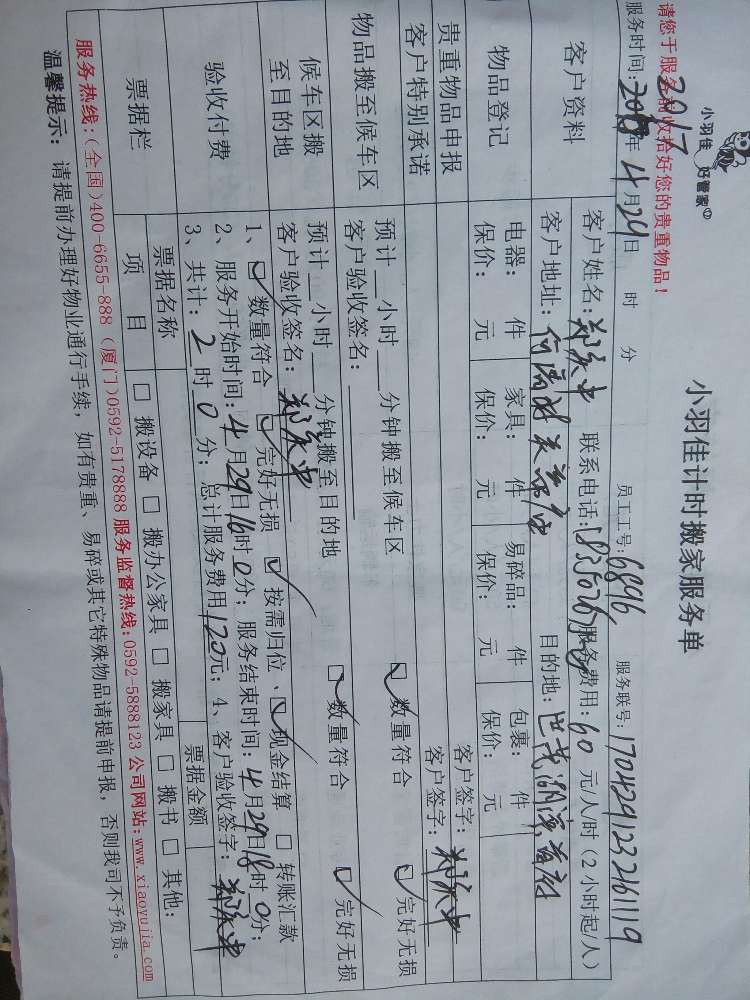 小羽佳 好管家
小羽佳计时搬家服务单
请您于服务前收拾好您的贵重物品！
2017
服务时间: 年4月29日 时 分 员工工号: 6896 服务联号: 170429123216119
客户资料
客户姓名: 联系电话: 服务费用: 60 元/人/时（2小时起/人）
客户地址: 目的地:
物品登记
电器: 件 家具: 件 易碎品: 件 包裹: 件
保价: 元 保价: 元 保价: 元 保价: 元
贵重物品申报 客户签字:
客户特别承诺 客户签字:
物品搬至候车区
预计 小时 分钟搬至候车区 数量符合 完好无损
客户验收签名:
候车区搬至目的地
预计 小时 分钟搬至目的地 数量符合 完好无损
客户验收签名:
验收付费
1、 数量符合 完好无损 按需归位、 现金结算 转账汇款
2、服务开始时间: 4月29日16时0分; 服务结束时间: 4月29日18时0分;
3、共计: 2时0分; 总计服务费用120元; 4、客户验收签字:
票据栏
票据名称 票据金额
项 目 搬设备 搬办公家具 搬家具 搬书 其他:
服务热线:(全国)400-6655-888 (厦门)0592-5178888 服务监督热线:0592-5888123 公司网站:www.xiaoyujia.com
温馨提示: 请提前办理好物业通行手续, 如有贵重、易碎或其它特殊物品请提前申报, 否则我司不予负责。